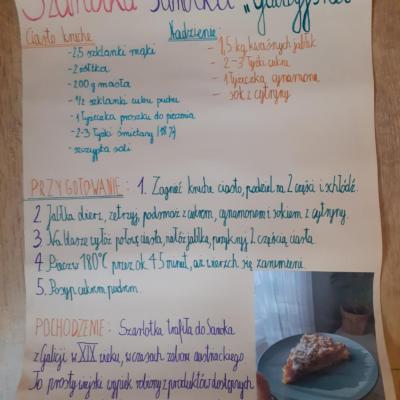 Szarlotka Sanocka „Galicyjska"
Ciasto kruche
- 2,5 szklanki mąki
- 2 żółtka
- 200 g masła
- 1/2 szklanki cukru pudru
- 1 łyżeczka proszku do pieczenia
- 2-3 łyżki śmietany (18%)
- szczypta soli
Nadzienie:
- 1,5 kg kwaśnych jabłek
- 2-3 łyżki cukru
- 1 łyżeczka cynamonu
- sok z cytryny
PRZYGOTOWANIE: 1. Zagnieć kruche ciasto, podziel na 2 części i schłódź.
2 Jabłka obierz, zetrzyj, podsmaż z cukrem, cynamonem i sokiem z cytryny.
3 Na blasze wyłóż połowę ciasta, nałóż jabłka, przykryj 2 częścią ciasta
4. Piecz w 180°C przez ok 45 minut, aż wierzch się zarumieni.
5. Posyp cukrem pudrem.
POCHODZENIE: Szarlotka trafiła do Sanoka
z Galicji w XIX wieku, w czasach zaboru austriackiego.
To prosty wiejski wypiek robiony z produktów dostępnych